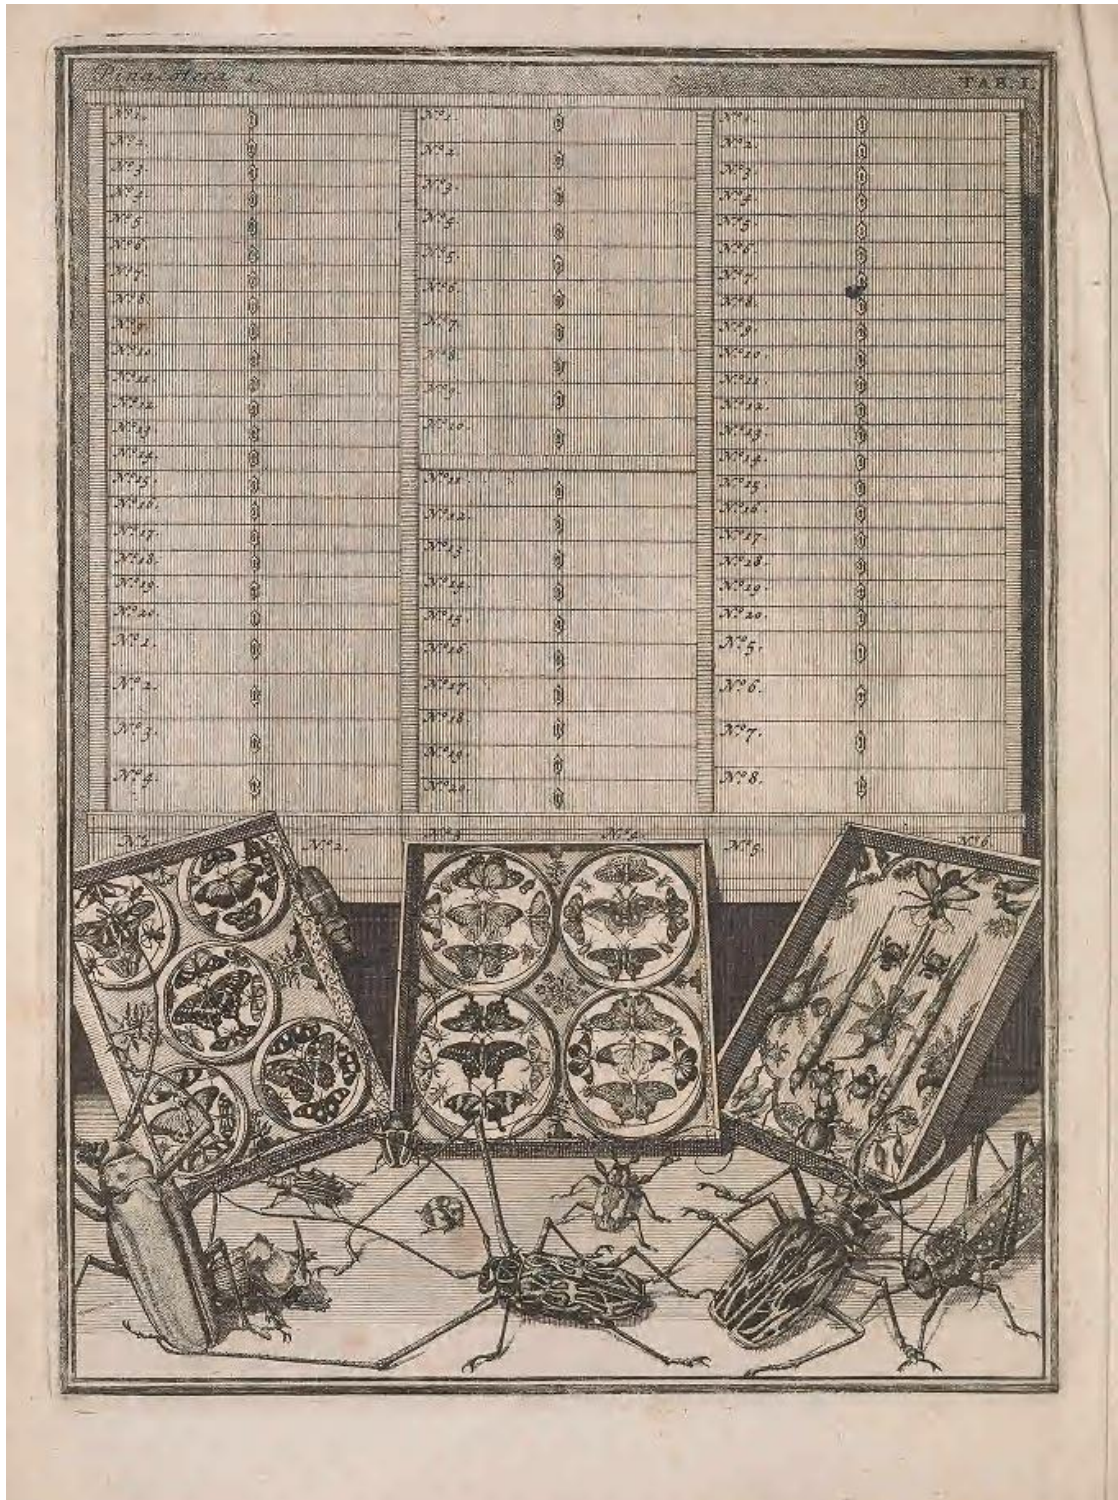 Pinacoteca 1.
TAB. I.
N.º 1.
N.º 2.
N.º 3.
N.º 4.
N.º 5.
N.º 6.
N.º 7.
N.º 8.
N.º 9.
N.º 10.
N.º 11.
N.º 12.
N.º 13.
N.º 14.
N.º 15.
N.º 16.
N.º 17.
N.º 18.
N.º 19.
N.º 20.
N.º 1.
N.º 2.
N.º 3.
N.º 4.
N.º 1.
N.º 2.
N.º 3.
N.º 4.
N.º 5.
N.º 6.
N.º 7.
N.º 8.
N.º 9.
N.º 10.
N.º 11.
N.º 12.
N.º 13.
N.º 14.
N.º 15.
N.º 16.
N.º 17.
N.º 18.
N.º 19.
N.º 20.
N.º 1.
N.º 2.
N.º 3.
N.º 4.
N.º 5.
N.º 6.
N.º 7.
N.º 8.
N.º 9.
N.º 10.
N.º 11.
N.º 12.
N.º 13.
N.º 14.
N.º 15.
N.º 16.
N.º 17.
N.º 18.
N.º 19.
N.º 20.
N.º 5.
N.º 6.
N.º 7.
N.º 8.
N.º 1.
N.º 2.
N.º 3
N.º 4.
N.º 5
N.º 6.